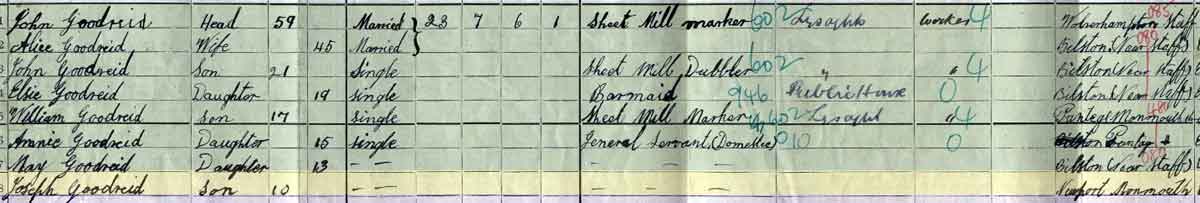 John Goodreid Head 59 Married 23 7 6 1 Sheet Mill marker 602 Lysaghts Worker 4 Wolverhampton Staff 085
Alice Goodreid Wife 45 Married Bilston (Near Staffs) 080
John Goodreid Son 21 Single Sheet Mill Dubbler 602 " " 4 Bilston (Near Staffs)
Elsie Goodreid Daughter 19 Single Barmaid 946 Public House 0 Bilston (Near Staffs)
William Goodreid Son 17 Single Sheet Mill Marker 602 Lysaght " 4 Panteg Monmouth
Annie Goodreid Daughter 15 Single General Servant (Domestic) 010 0 Panteg
May Goodreid Daughter 13 — — — — — Bilston (Near Staffs) 080
Joseph Goodreid Son 10 — — — — — Newport Monmouth